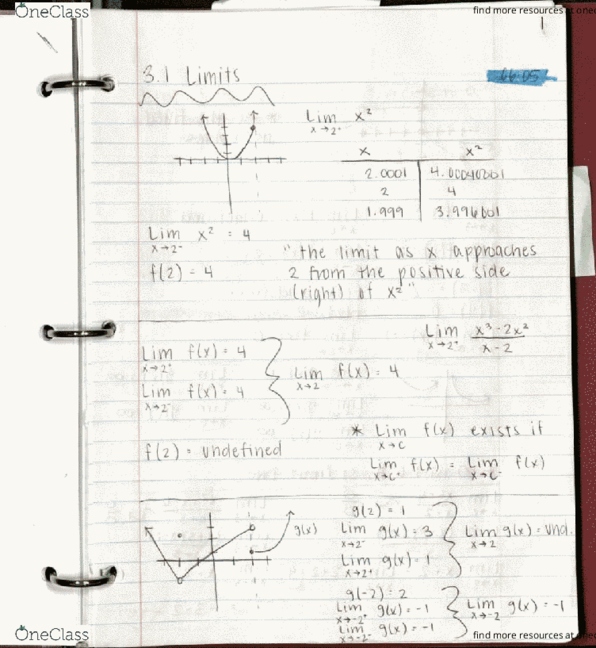 OneClass
find more resources at one
1
3.1 Limits
06.05
Lim x→2⁺ x²
x | x²
2.0001 | 4.00040001
2 | 4
1.999 | 3.996001
Lim x→2⁻ x² = 4
f(2) = 4
"the limit as x approaches
2 from the positive side
(right) of x²"
Lim x→2⁺ x³-2x²/x-2
Lim x→2⁺ f(x) = 4
Lim x→2⁻ f(x) = 4
Lim x→2 f(x) = 4
f(2) = undefined
* Lim x→c f(x) exists if
Lim x→c⁺ f(x) = Lim x→c⁻ f(x)
g(x)
g(2) = 1
Lim x→2⁻ g(x) = 3
Lim x→2⁺ g(x) = 1
Lim x→2 g(x) = und.
g(-2) = 2
Lim x→-2⁺ g(x) = -1
Lim x→-2⁻ g(x) = -1
Lim x→-2 g(x) = -1
OneClass
find more resources at one